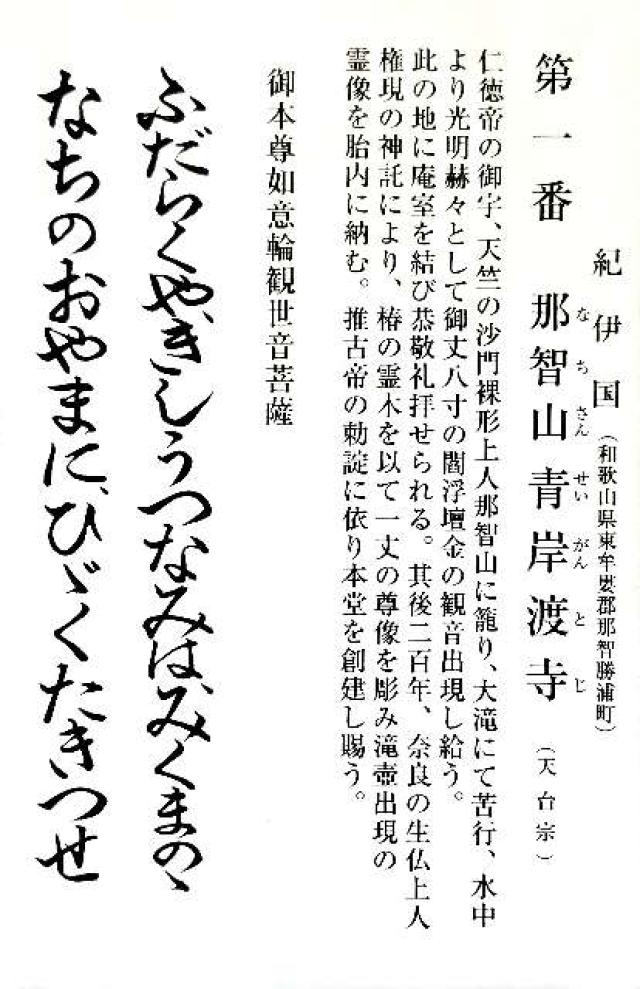 紀伊国（和歌山県東牟婁郡那智勝浦町）
第一番 那智山青岸渡寺（天台宗）
なちさんせいがんとじ
仁徳帝の御宇、天竺の沙門裸形上人那智山に籠り、大滝にて苦行、水中
より光明赫々として御丈八寸の閻浮壇金の観音出現し給う。
此の地に庵室を結び恭敬礼拝せられる。其後二百年、奈良の生仏上人
権現の神託により、椿の霊木を以て一丈の尊像を彫み滝壺出現の
霊像を胎内に納む。推古帝の勅諚に依り本堂を創建し賜う。
御本尊如意輪観世音菩薩
ふだらくや、きしうつなみは、みくまのゝ
なちのおやまに、ひゞくたきつせ